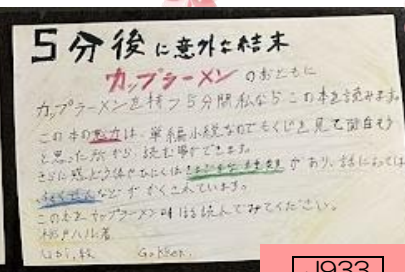 5分後に意外な結末
カップラーメンのおともに
カップラーメンを待つ5分間私ならこの本を読みます。
この本の魅力は、単編小説なのでもくじを見て面白そう
と思った所から、読む事ができます。
さらに感どう体やひにくは があり、話によっては
などがかくされています。
この本をカップラーメン味は読んでみてください。
ハル著
Gakken
J933